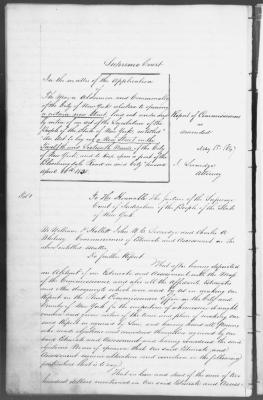 Supreme Court
In the matter of the Application
of
The Mayor Aldermen and Commonalty
of the City of New York relative to opening
a certain new Street laid out under day
by virtue of an act of the Legislature of the
People of the State of New York, entitled
"An Act to lay out a New Street in the
Twelfth and Sixteenth Wards of the City
of New York, and to keep open a part of the
Bloomingdale Road in said City" passed
April
Report of Commissioners
as
amended
May 15
Attorney
To The Honorable The Justices of the Supreme
Court of Judicature of the People of the State
of New York
We William P. Hallett John W. C. Leveridge and Charles A.
Commissioners of Estimate and Assessment in the
above entitled matter,
Do further Report
That after having deposited
an Abstract of our Estimate and Assessment with the
of the Commissioners and also all the Affidavits Estimates
and other documents which were used by us in making our
Report in the Street Commissioners Office in the City and
County of New York for the inspection of whomsoever it might
concern and given notice of the time and place of making our
said Report as required by law, and having heard all Persons
who made objections and considered themselves aggrieved by our
said Estimate and Assessment and having considered the said
objections We are of opinion that our said Estimate and
Assessment requires alteration and correction in the following
particulars that is to say
That in lieu and stead of the sum of two
hundred dollars mentioned in our said Estimate and